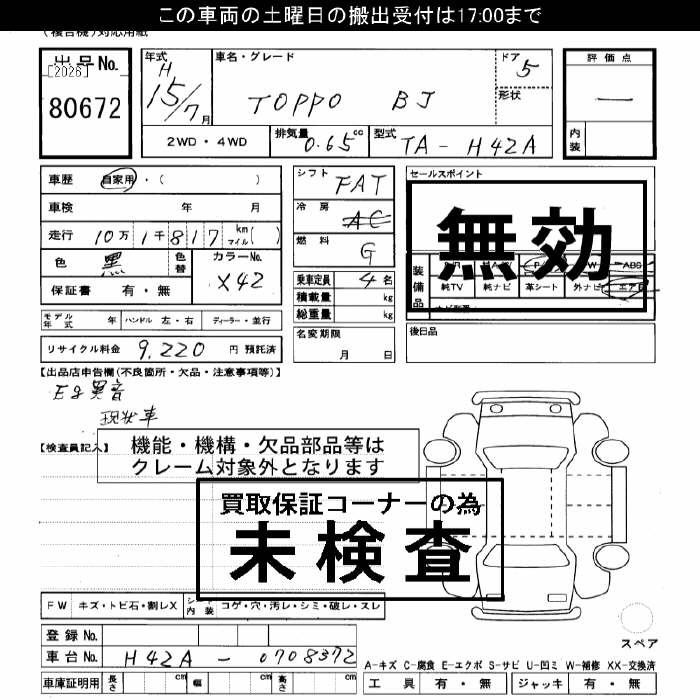 この車両の土曜日の搬出受付は17:00まで
(複合機)対応用紙
出品No.
[2026]
80672
年式 H 15/7 月
車名・グレード
TOPPO BJ
ドア 5
形状
評価点
—
内装
2WD・4WD
排気量 0.65 cc
型式 TA-H42A
車歴 自家用・( )
車検 年 月
走行 10万1千817 km マイル( )
色 黒 色替
カラーNo. X42
保証書 有・無
シフト FAT
冷房 AC
燃料 G
乗車定員 4名
積載量 kg
総重量 kg
セールスポイント
無効
装備品
S/R PS PW ABS
純TV 純ナビ 革シート 外ナビ エアB
モデル年式 年 ハンドル 左・右 ディーラー・並行
名変期限 月 日
後日品
リサイクル料金 9,220 円 預託済
【出品店申告欄(不良箇所・欠品・注意事項等)】
E/g異音
現状車
【検査員記入】
機能・機構・欠品部品等は
クレーム対象外となります
買取保証コーナーの為
未検査
FW キズ・トビ石・割レX シート内装 コゲ・穴・汚レ・シミ・破レ・スレ
登録No.
車台No. H42A-0708372
スペア
A-キズ C-腐食 E-エクボ S-サビ U-凹ミ W-補修 XX-交換済
車庫証明用 長さ cm 幅 cm 高さ cm
工具 有・無 ジャッキ 有・無